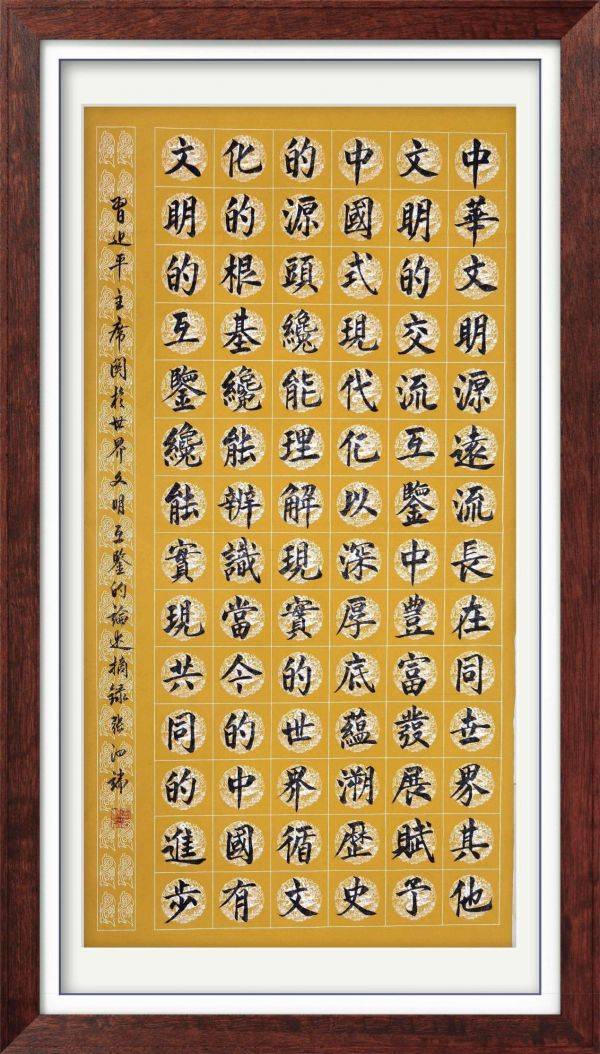 中華文明源遠流長在同世界其他
文明的交流互鑒中豐富發展賦予
中國式現代化以深厚底蘊溯歷史
的源頭纔能理解現實的世界循文
化的根基纔能辨識當今的中國有
文明的互鑒纔能實現共同的進步
習近平主席關於世界文明互鑒的論述摘錄張